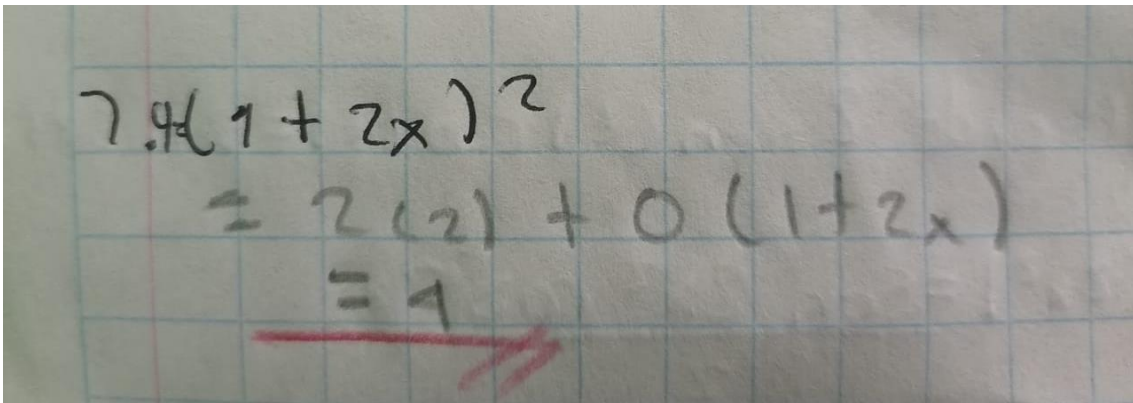 7.4(1+2x)²
= 2(2) + 0(1+2x)
= 4